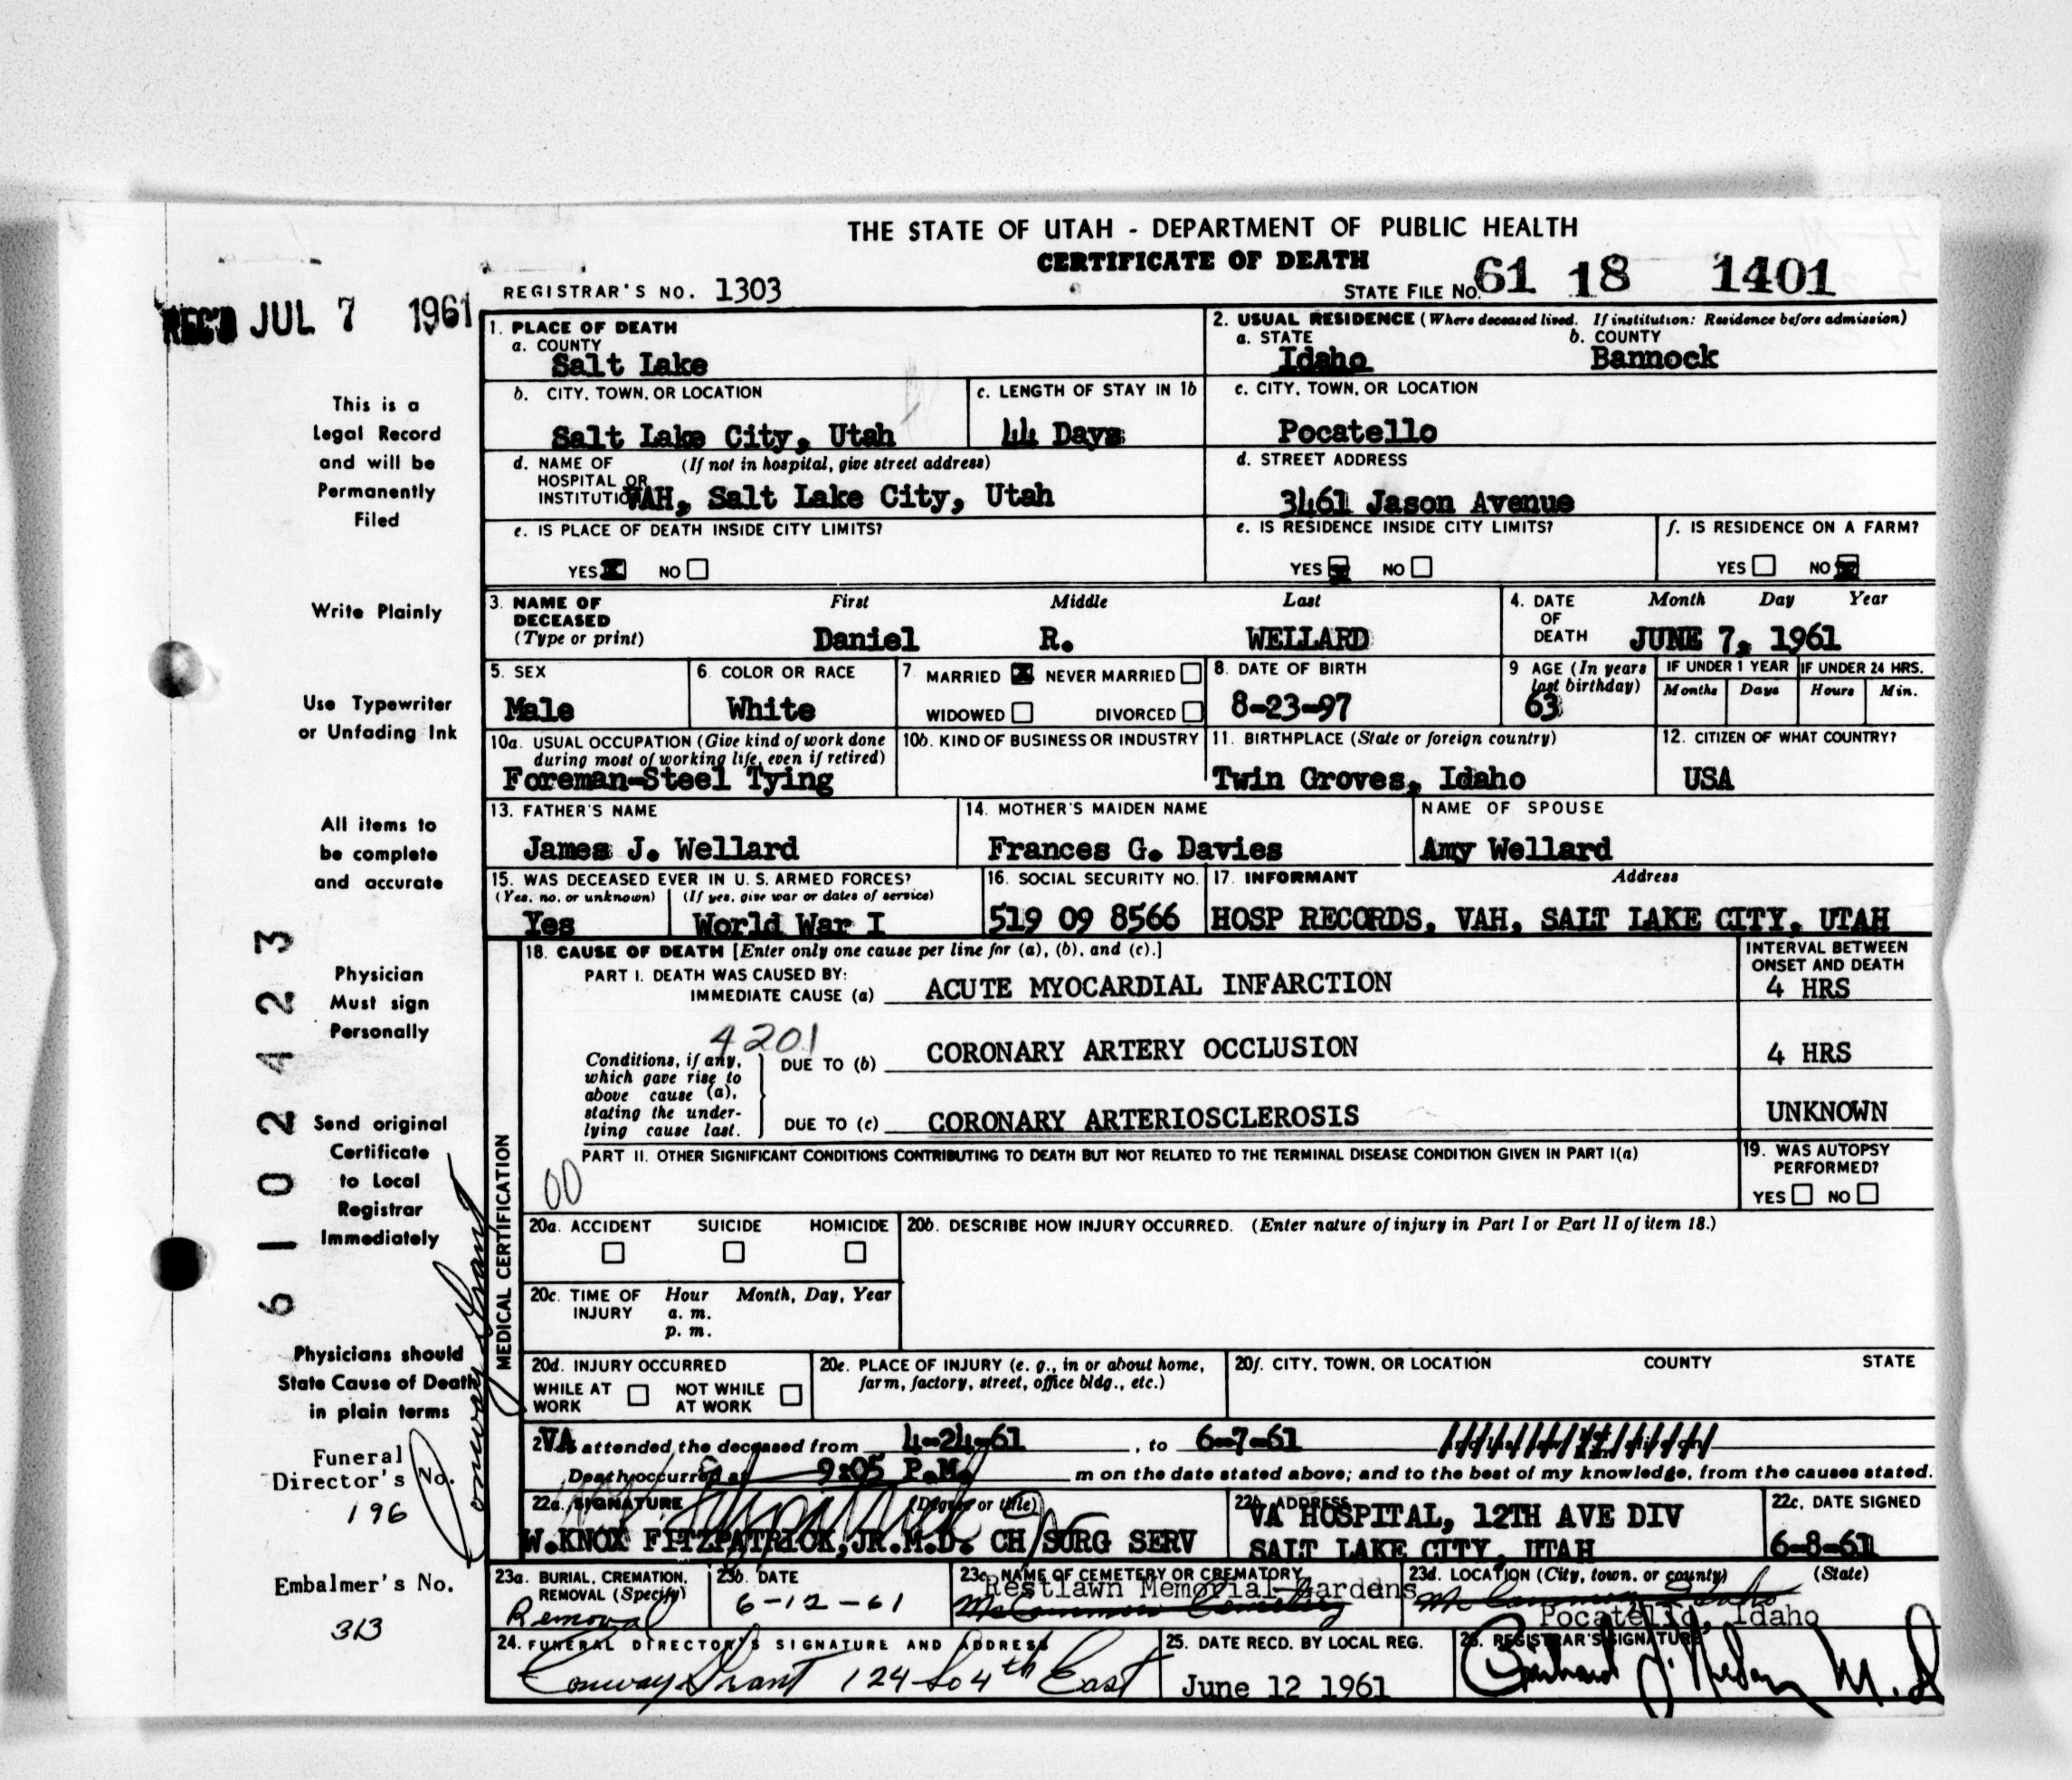 THE STATE OF UTAH - DEPARTMENT OF PUBLIC HEALTH
CERTIFICATE OF DEATH
REGISTRAR'S NO. 1303
STATE FILE NO. 61 18 1401
REC'D JUL 7 1961
This is a
Legal Record
and will be
Permanently
Filed
Write Plainly
Use Typewriter
or Unfading Ink
All items to
be complete
and accurate
Physician
Must sign
Personally
Send original
Certificate
to Local
Registrar
Immediately
Physicians should
State Cause of Death
in plain terms
Funeral
Director's No.
196
Embalmer's No.
313
6102423
Conway Grant
1. PLACE OF DEATH
a. COUNTY
Salt Lake
2. USUAL RESIDENCE (Where deceased lived. If institution: Residence before admission)
a. STATE b. COUNTY
Idaho Bannock
b. CITY, TOWN, OR LOCATION
Salt Lake City, Utah
c. LENGTH OF STAY IN 1b
44 Days
c. CITY, TOWN, OR LOCATION
Pocatello
d. NAME OF (If not in hospital, give street address)
HOSPITAL OR
INSTITUTION VAH, Salt Lake City, Utah
d. STREET ADDRESS
3461 Jason Avenue
e. IS PLACE OF DEATH INSIDE CITY LIMITS?
YES X NO
e. IS RESIDENCE INSIDE CITY LIMITS?
YES X NO
f. IS RESIDENCE ON A FARM?
YES NO X
3. NAME OF First Middle Last
DECEASED
(Type or print) Daniel R. WELLARD
4. DATE Month Day Year
OF
DEATH JUNE 7, 1961
5. SEX
Male
6. COLOR OR RACE
White
7 MARRIED X NEVER MARRIED
WIDOWED DIVORCED
8. DATE OF BIRTH
8-23-97
9 AGE (In years
last birthday)
63
IF UNDER 1 YEAR IF UNDER 24 HRS.
Months Days Hours Min.
10a. USUAL OCCUPATION (Give kind of work done
during most of working life, even if retired)
Foreman-Steel Tying
10b. KIND OF BUSINESS OR INDUSTRY
11. BIRTHPLACE (State or foreign country)
Twin Groves, Idaho
12. CITIZEN OF WHAT COUNTRY?
USA
13. FATHER'S NAME
James J. Wellard
14. MOTHER'S MAIDEN NAME
Frances G. Davies
NAME OF SPOUSE
Amy Wellard
15. WAS DECEASED EVER IN U. S. ARMED FORCES?
(Yes, no, or unknown) (If yes, give war or dates of service)
Yes World War I
16. SOCIAL SECURITY NO.
519 09 8566
17. INFORMANT Address
HOSP RECORDS, VAH, SALT LAKE CITY, UTAH
MEDICAL CERTIFICATION
18. CAUSE OF DEATH [Enter only one cause per line for (a), (b), and (c).]
INTERVAL BETWEEN
ONSET AND DEATH
PART I. DEATH WAS CAUSED BY:
IMMEDIATE CAUSE (a) ACUTE MYOCARDIAL INFARCTION 4 HRS
4201
Conditions, if any,
which gave rise to
above cause (a),
stating the under-
lying cause last.
DUE TO (b) CORONARY ARTERY OCCLUSION 4 HRS
DUE TO (c) CORONARY ARTERIOSCLEROSIS UNKNOWN
PART II. OTHER SIGNIFICANT CONDITIONS CONTRIBUTING TO DEATH BUT NOT RELATED TO THE TERMINAL DISEASE CONDITION GIVEN IN PART I(a)
00
19. WAS AUTOPSY
PERFORMED?
YES NO
20a. ACCIDENT SUICIDE HOMICIDE
20b. DESCRIBE HOW INJURY OCCURRED. (Enter nature of injury in Part I or Part II of item 18.)
20c. TIME OF Hour Month, Day, Year
INJURY a. m.
p. m.
20d. INJURY OCCURRED
WHILE AT WORK NOT WHILE AT WORK
20e. PLACE OF INJURY (e. g., in or about home,
farm, factory, street, office bldg., etc.)
20f. CITY, TOWN, OR LOCATION COUNTY STATE
2 VA attended the deceased from 4-24-61, to 6-7-61
Death occurred at 9:05 P.M. m on the date stated above; and to the best of my knowledge, from the causes stated.
22a. SIGNATURE (Degree or title)
W.KNOX FITZPATRICK,JR.M.D. CH SURG SERV
22b. ADDRESS
VA HOSPITAL, 12TH AVE DIV
SALT LAKE CITY, UTAH
22c. DATE SIGNED
6-8-61
23a. BURIAL, CREMATION,
REMOVAL (Specify)
Removal
23b. DATE
6-12-61
23c. NAME OF CEMETERY OR CREMATORY
Restlawn Memorial Gardens
McCammon Cemetery
23d. LOCATION (City, town, or county) (State)
McCammon Idaho
Pocatello, Idaho
24. FUNERAL DIRECTOR'S SIGNATURE AND ADDRESS
Conway Grant 124 So 4th East
25. DATE RECD. BY LOCAL REG.
June 12 1961
26. REGISTRAR'S SIGNATURE